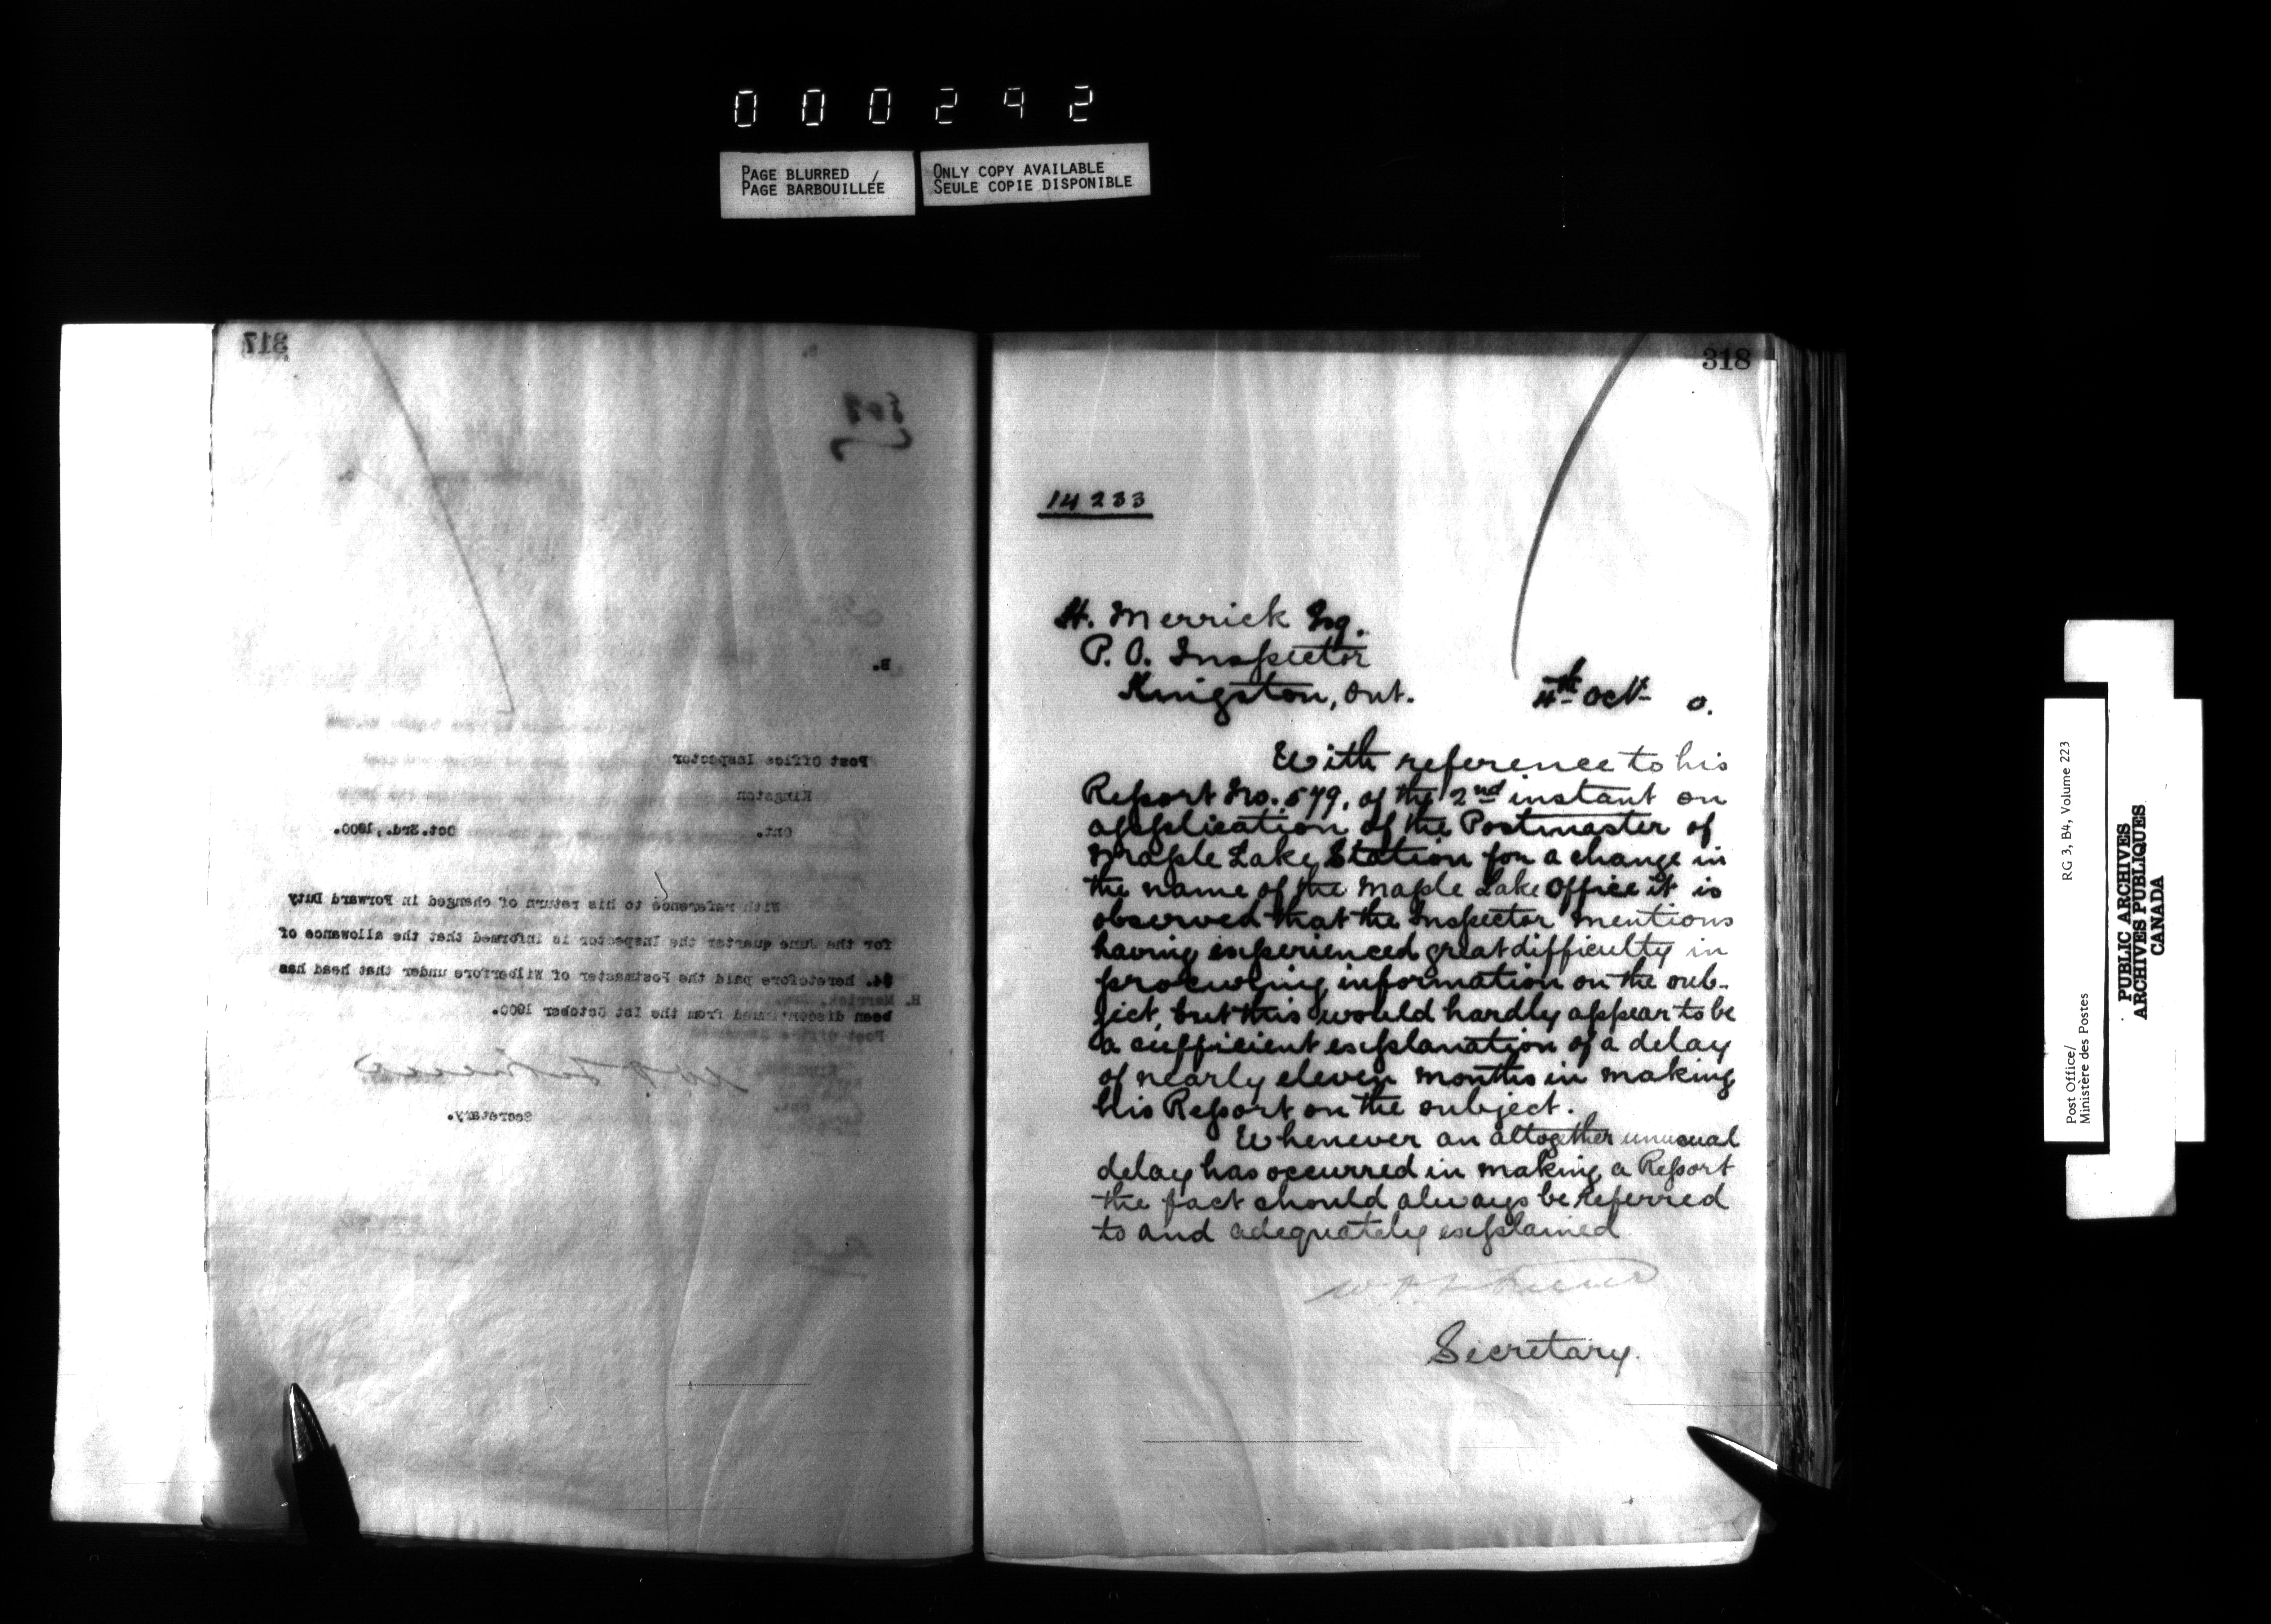 000292
PAGE BLURRED /
PAGE BARBOUILLÉE
ONLY COPY AVAILABLE
SEULE COPIE DISPONIBLE
317
B.
Post Office Inspector
Kingston
Ont. Oct.3rd.,1900.
With reference to his return of changed in Forward Duty
for the June quarter the Inspector is informed that the allowance of
$4. heretofore paid the Postmaster of Wilberforce under that head has
H. Merrick,
been discontinued from the 1st October 1900.
Post Office
Secretary.
318
14233
H. Merrick Esq.
P. O. Inspector
Kingston, Ont. 4th Oct 0.
With reference to his
Report No. 579, of the 2nd instant on
application of the Postmaster of
Maple Lake Station for a change in
the name of the Maple Lake Office it is
observed that the Inspector mentions
having experienced great difficulty in
procuring information on the sub-
ject, but this would hardly appear to be
a sufficient explanation of a delay
of nearly eleven months in making
his Report on the subject.
Whenever an altogether unusual
delay has occurred in making a Report
the fact should always be referred
to and adequately explained
Secretary.
Post Office/
Ministère des Postes
RG 3, B4, Volume 223
PUBLIC ARCHIVES
ARCHIVES PUBLIQUES
CANADA